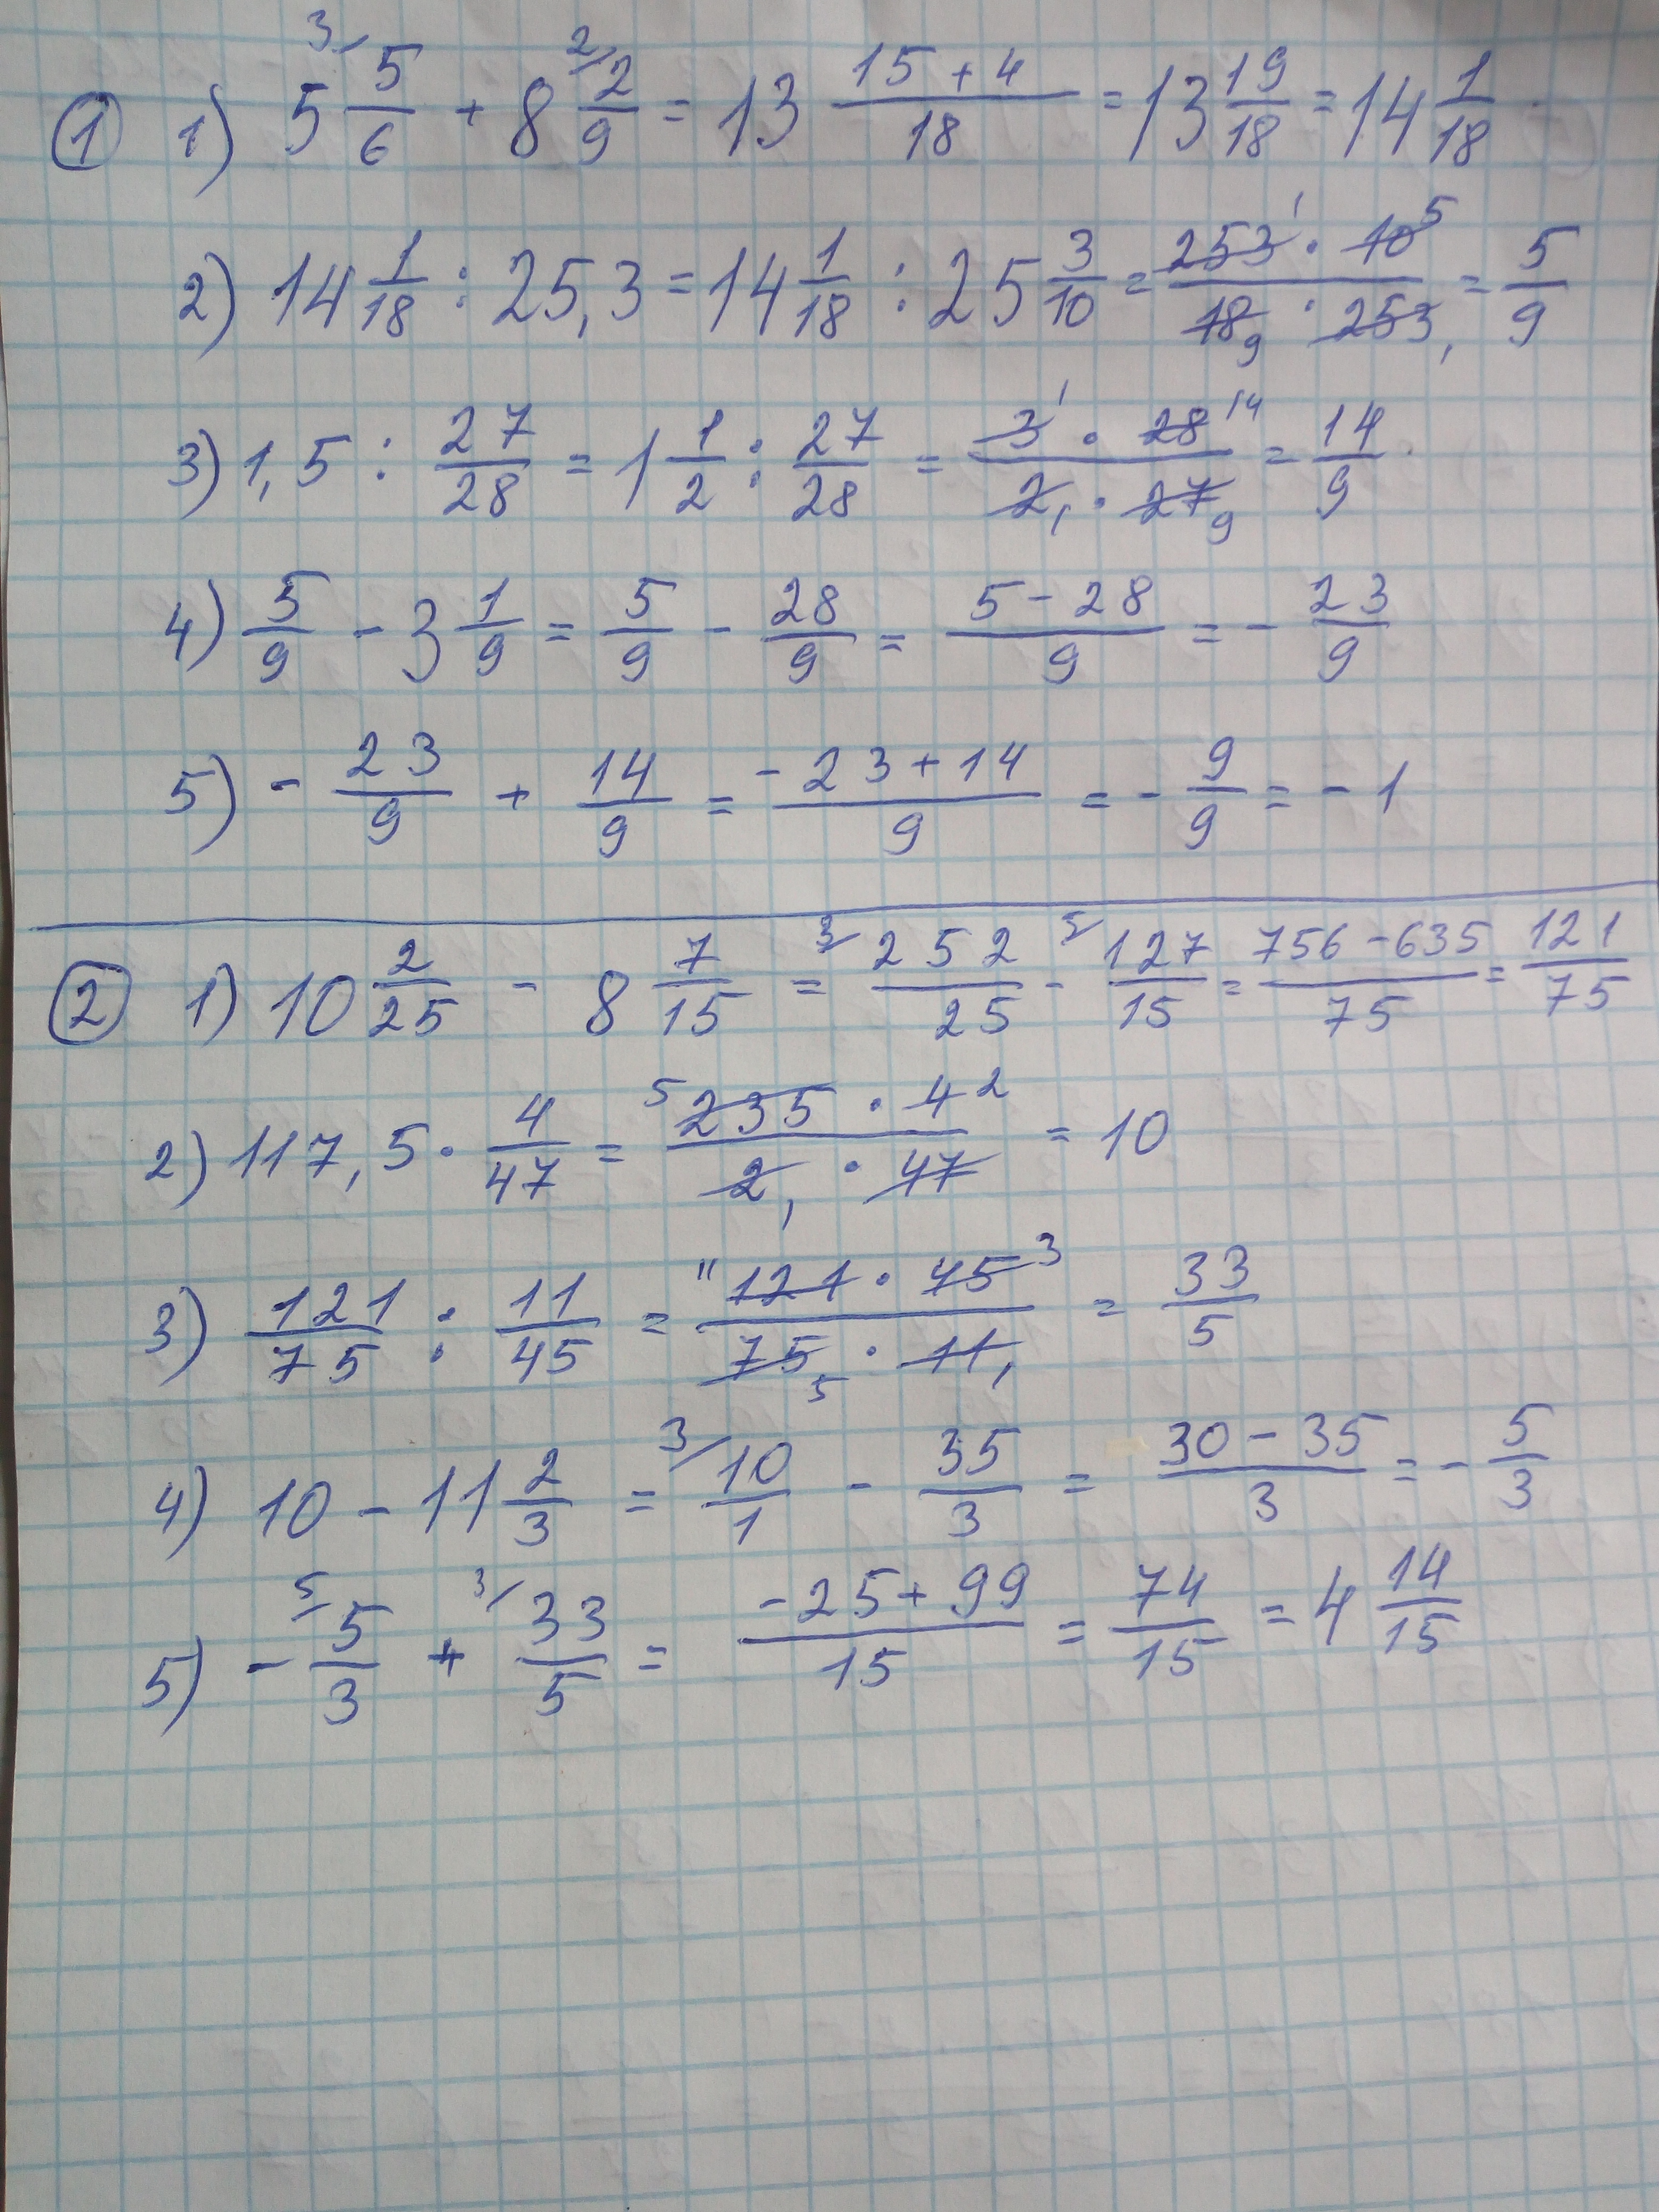 ① 1) 5 3/ 5/6 + 8 2/ 2/9 = 13 (15 + 4)/18 = 13 19/18 = 14 1/18
2) 14 1/18 : 25,3 = 14 1/18 : 25 3/10 = (253 1 · 10 5)/(18 9 · 253 1) = 5/9
3) 1,5 : 27/28 = 1 1/2 : 27/28 = (3 1 · 28 14)/(2 1 · 27 9) = 14/9
4) 5/9 - 3 1/9 = 5/9 - 28/9 = (5 - 28)/9 = - 23/9
5) - 23/9 + 14/9 = (-23 + 14)/9 = - 9/9 = - 1
② 1) 10 2/25 - 8 7/15 = 3/ 252/25 - 5/ 127/15 = (756 - 635)/75 = 121/75
2) 117,5 · 4/47 = (5 235 · 4 2)/(2 1 · 47) = 10
3) 121/75 : 11/45 = (11 121 · 45 3)/(75 5 · 11 1) = 33/5
4) 10 - 11 2/3 = 3/ 10/1 - 35/3 = (30 - 35)/3 = - 5/3
5) - 5/ 5/3 + 3/ 33/5 = (-25 + 99)/15 = 74/15 = 4 14/15